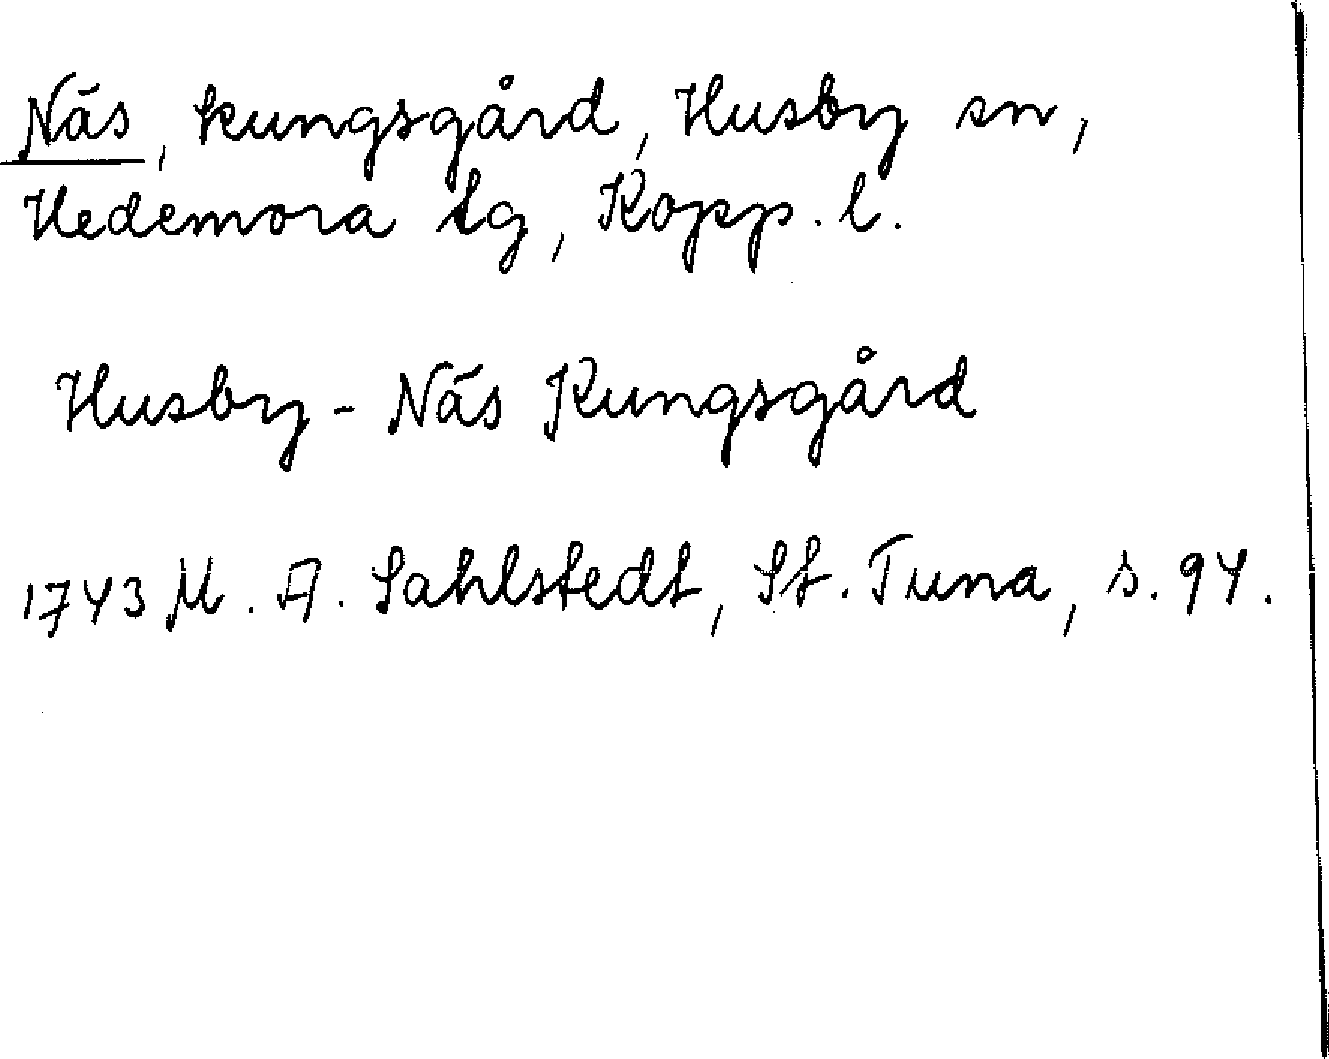 Näs, kungsgård, Husby sn,
Hedemora tg, Kopp. l.
Husby - Näs Kungsgård
1743 M. A. Sahlstedt, St. Tuna, s. 94.